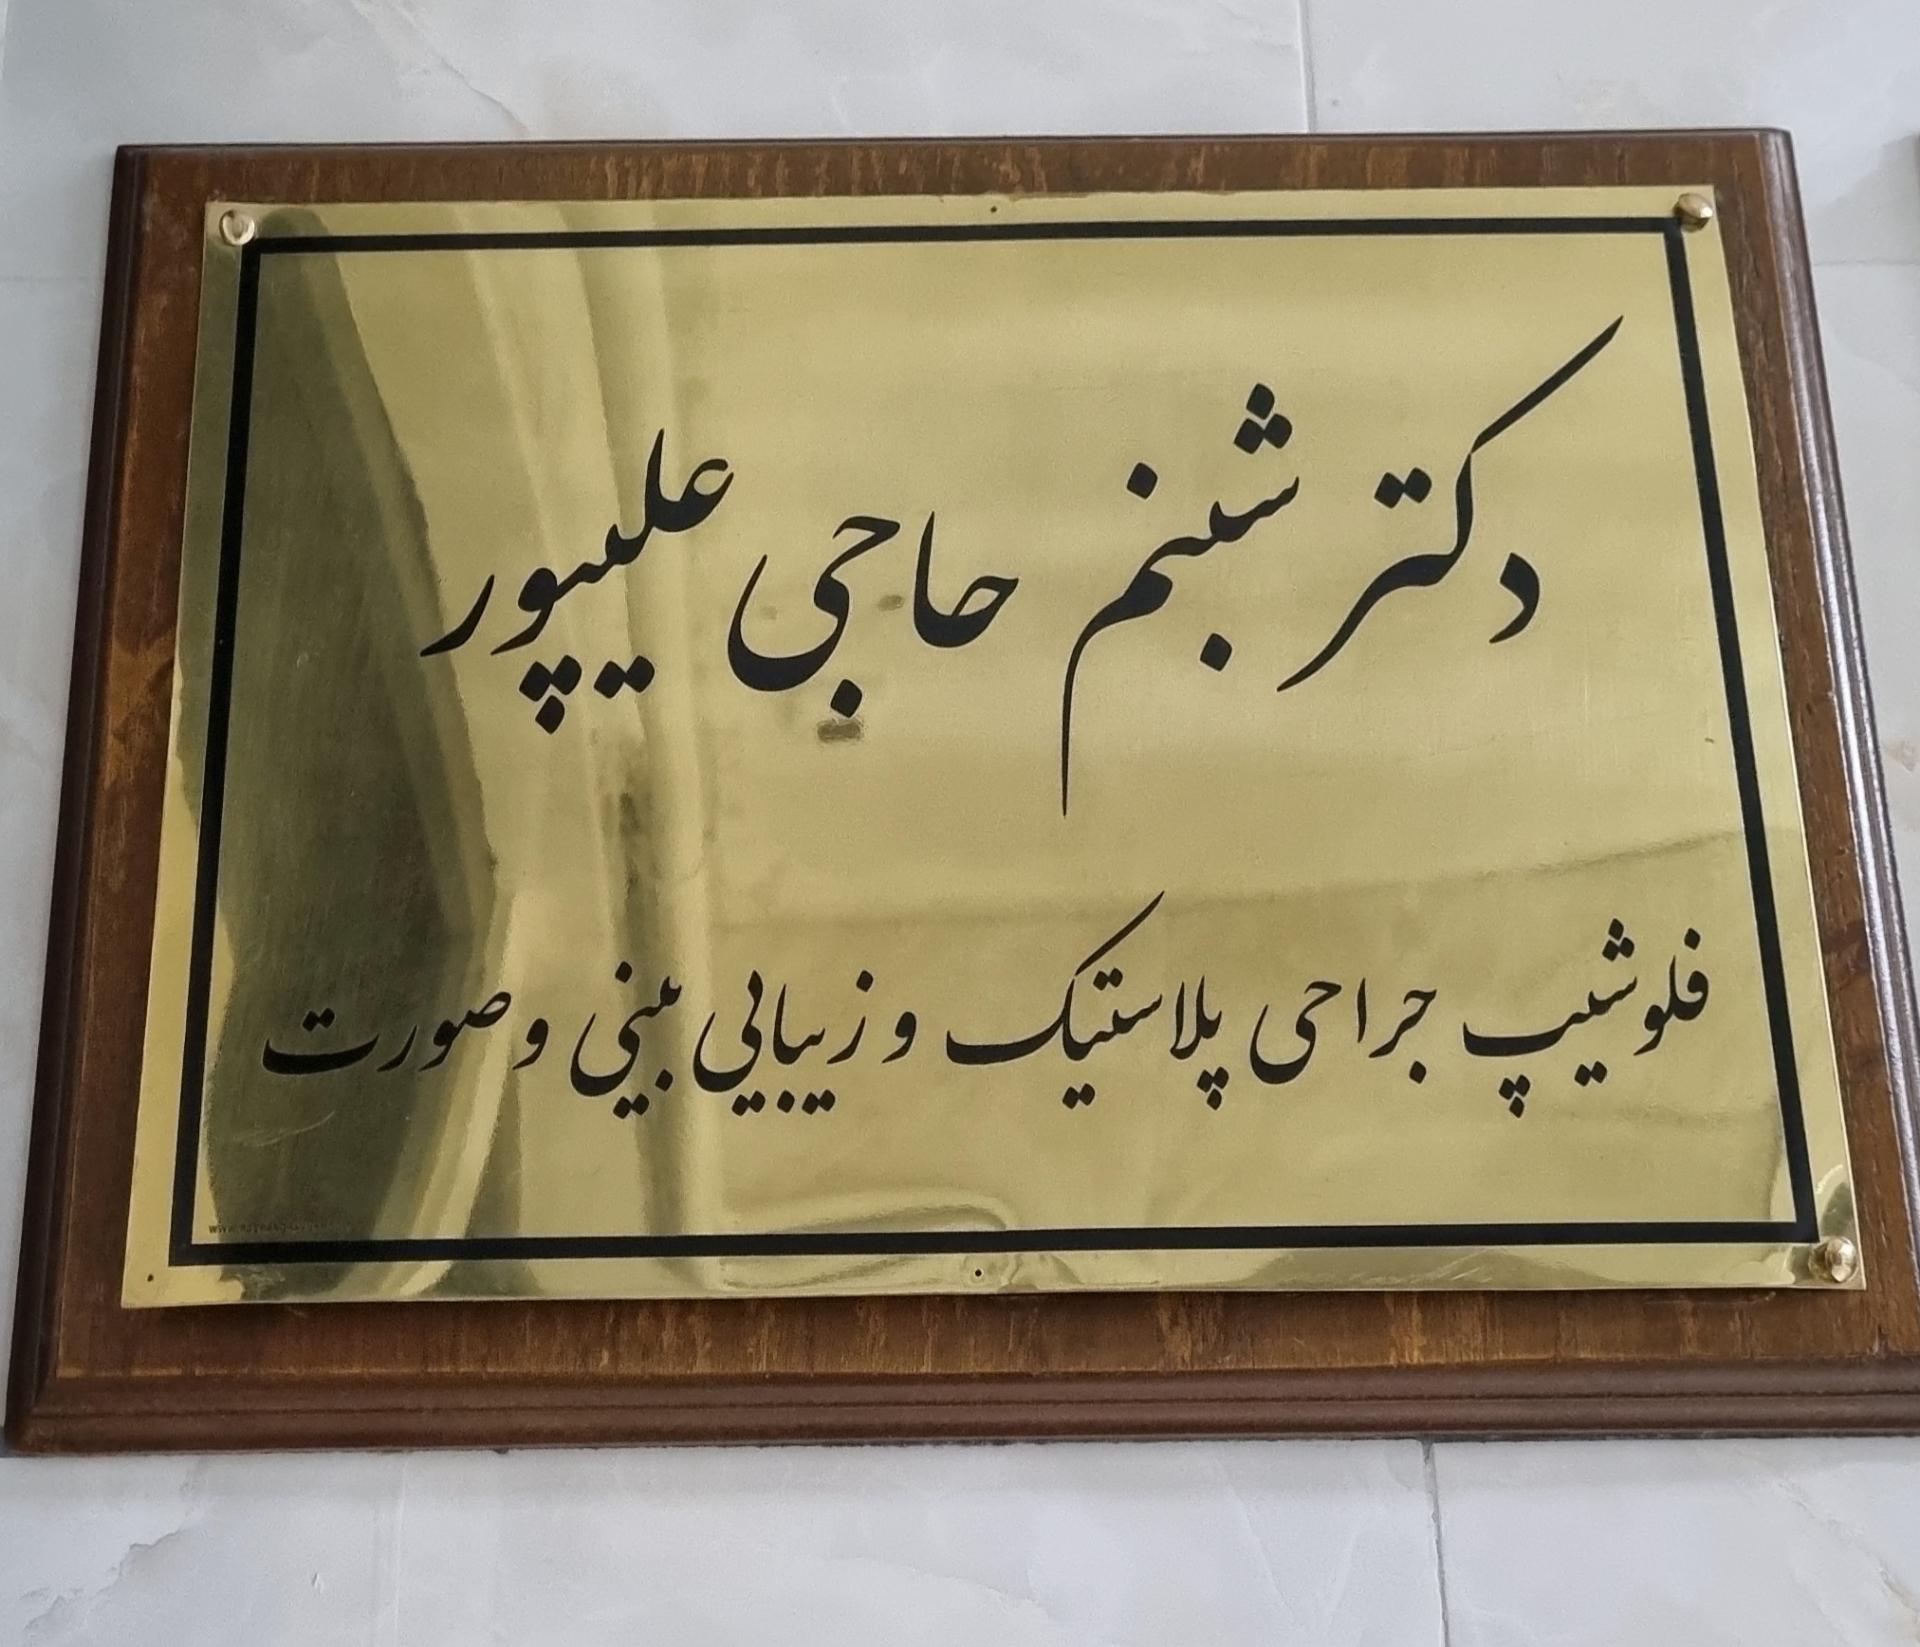 دکتر شبنم حاجی علیپور
فلوشیپ جراحی پلاستیک و زیبایی بینی و صورت